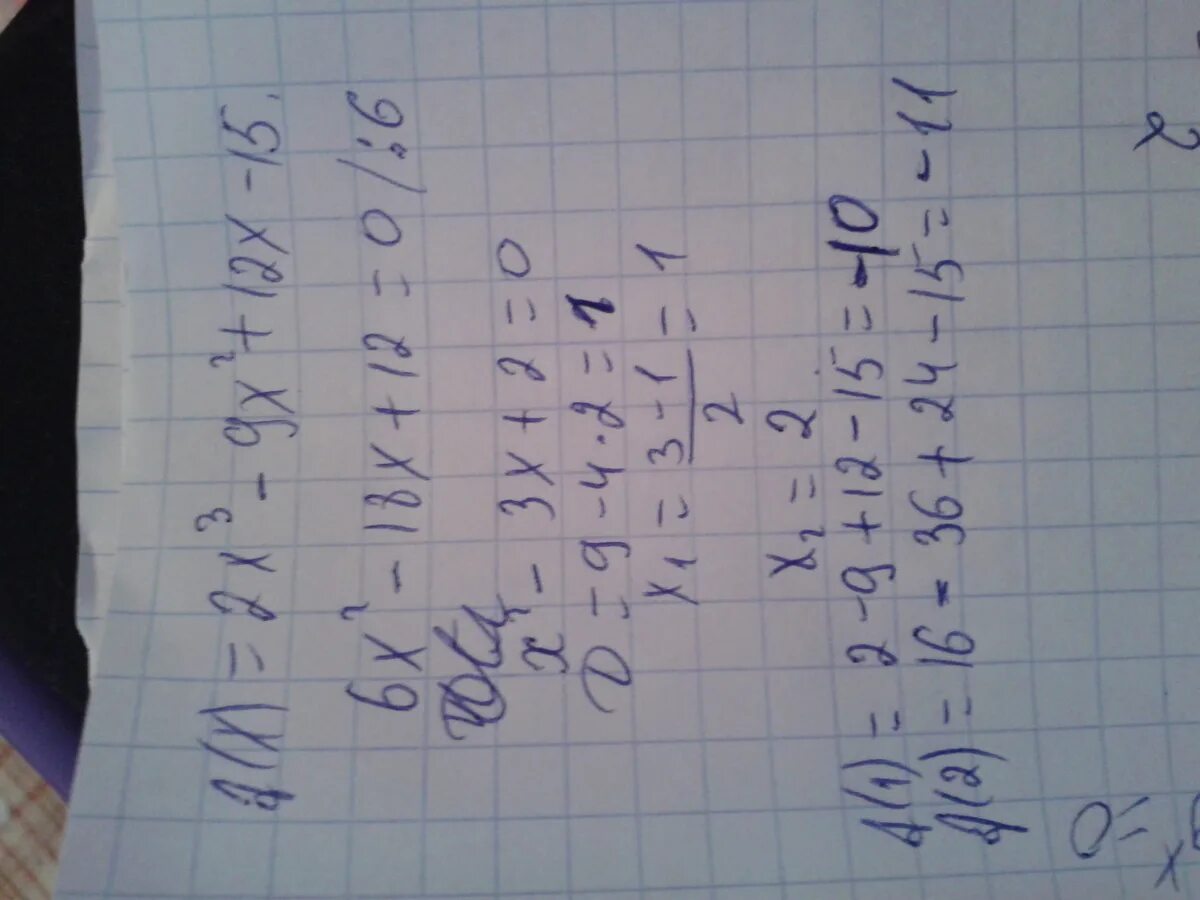 f(x) = 2x³ - 9x² + 12x - 15.
6x² - 18x + 12 = 0 /:6
x² - 3x + 2 = 0
D = 9 - 4·2 = 1
x₁ = (3-1)/2 = 1
x₂ = 2
f(1) = 2 - 9 + 12 - 15 = -10
f(2) = 16 - 36 + 24 - 15 = -11